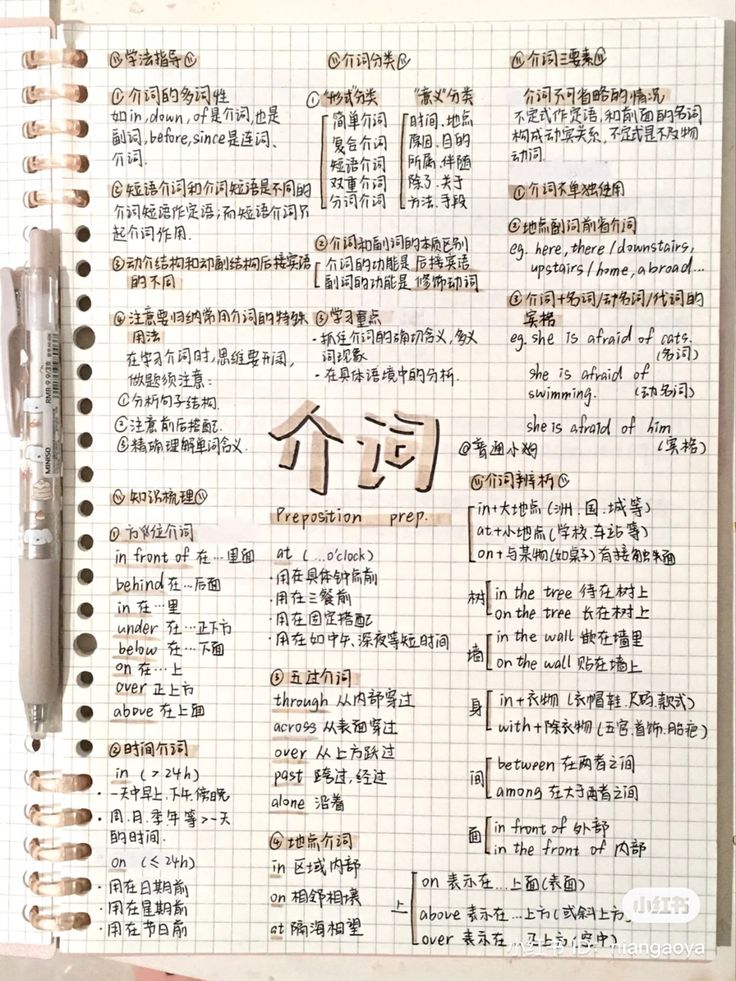 学法指导
① 介词的多词性
如in,down,of是介词,也是
副词,before,since是连词、
介词.
② 短语介词和介词短语是不同的
介词短语作定语;而短语介词只
起介词作用.
③ 动介结构和动副结构后接宾语
的不同
④ 注意要归纳常用介词的特殊
用法
在学习介词时,思维要开阔,
做题须注意:
①分析句子结构.
②注意前后搭配.
③精确理解单词含义.
介词分类
① "形式"分类
简单介词
复合介词
短语介词
双重介词
分词介词
"意义"分类
时间、地点
原因、目的
所属、伴随
除了、关于
方法、手段
② 介词和副词的本质区别
介词的功能是 后接宾语
副词的功能是 修饰动词
③ 学习重点
·抓住介词的确切含义,多义
词现象
·在具体语境中的分析.
介词三要素
介词不可省略的情况
不定式作定语,和前面的名词
构成动宾关系,不定式是不及物
动词.
① 介词不单独使用
② 地点副词前省介词
eg. here, there / downstairs,
upstairs / home, abroad...
③ 介词+名词/动名词/代词的
宾格
eg. she is afraid of cats.
(名词)
she is afraid of
swimming. (动名词)
she is afraid of him
(宾格)
介·词
Preposition prep.
@普通小狗
知识梳理
① 方位介词
in front of 在…里面
behind 在…后面
in 在…里
under 在…正下方
below 在…下面
on 在…上
over 正上方
above 在上面
② 时间介词
in (>24h)
·一天中早上、下午、傍晚
·周、月、季、年等>一天
的时间.
on (≤24h)
·用在日期前
·用在星期前
·用在节日前
at (...o'clock)
·用在具体钟点前
·用在三餐前
·用在固定搭配
·用在如中午、深夜等短时间
③ 五过介词
through 从内部穿过
across 从表面穿过
over 从上方跃过
past 跨过,经过
alone 沿着
④ 地点介词
in 区域内部
on 相邻相壤
at 隔海相望
介词辨析
in+大地点(洲、国、城等)
at+小地点(学校、车站等)
on+与某物(如桌子)有接触面
树
in the tree 待在树上
on the tree 长在树上
墙
in the wall 嵌在墙里
on the wall 贴在墙上
身
in+衣物(衣帽鞋、尺码、款式)
with+除衣物(五官、首饰、胎疤)
间
between 在两者之间
among 在大于两者之间
面
in front of 外部
in the front of 内部
上
on 表示在…上面(表面)
above 表示在…上方(或斜上方)
over 表示在…正上方(空中)
RMB:9.9/3支
MINISO
小红书
小红书 ID: niangaoya